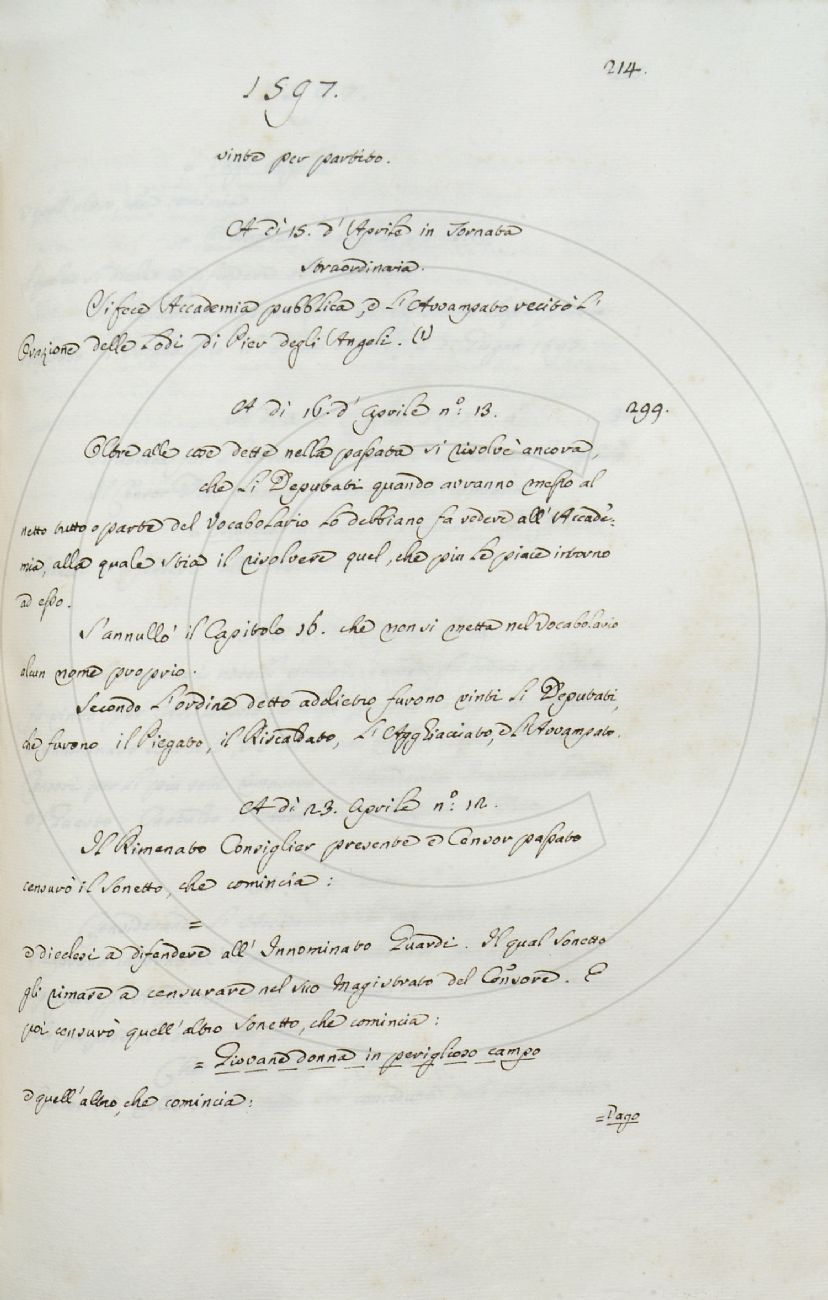 214.
1597.
vinte per partito.
A dì 15. d'Aprile in Tornata
straordinaria.
Si fece Accademia pubblica, e l'Avvampato recitò l'
Orazione delle Lodi di Pier degli Angeli. (1)
A dì 16. d'Aprile nº. 13. 299.
Oltre alle cose dette nella passata si risolvè ancora,
che li Deputati quando avranno messo al
netto tutto o parte del Vocabolario lo debbiano fa vedere all'Accade-
mia, alla quale stia il risolvere quel, che piu le piace intorno
ad esso.
S'annullò il Capitolo 16. che non si metta nel Vocabolario
alcun nome proprio.
Secondo l'ordine detto addietro furono vinti li Deputati,
che furono il Piegato, il Riscaldato, l'Agghiacciato, e l'Avvampato.
A dì 23. Aprile nº. 12.
Il Rimenato Consiglier presente e Censor passato
censurò il sonetto, che comincia:
=
e diedesi a difendere all'Innominato Guardi. Il qual sonetto
gli rimase a censurare nel suo Magistrato del Censore. E
poi censurò quell'altro sonetto, che comincia:
= Giovane donna in periglioso campo
e quell'altro, che comincia:
= Vago